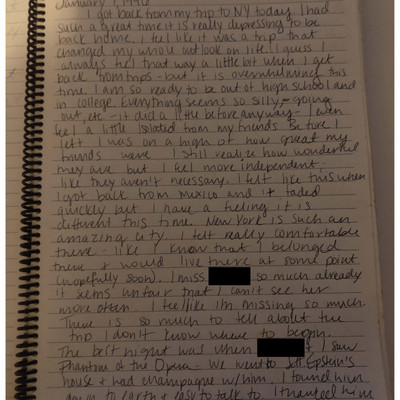 January 1, 1996
I got back from my trip to NY today. I had
such a great time it is really depressing to be
back home. I feel like it was a trip that
changed my whole outlook on life. I guess I
always feel that way a little bit when I get
back from trips - but it is overwhelming this
time. I am so ready to be out of high school and
in college. Everything seems so silly - going
out, etc - it did a little before anyway - I even
feel a little isolated from my friends. Before I
left I was on a high of how great my
friends were. I still realize how wonderful
they are but I feel more independent -
like they aren't necessary. I felt like this when
I got back from Mexico and it faded
quickly but I have a feeling it is
different this time. New York is such an
amazing city. I felt really comfortable
there - like I know that I belonged
there & would live there at some point
(hopefully soon). I miss so much already
it seems unfair that I can't see her
more often. I feel like I'm missing so much.
There is so much to tell about the
trip I don't know where to begin.
The best night was when & I saw
Phantom of the Opera - We went to Jeff Epstein's
house & had champagne w/him. I found him
down to earth & easy to talk to. I
him